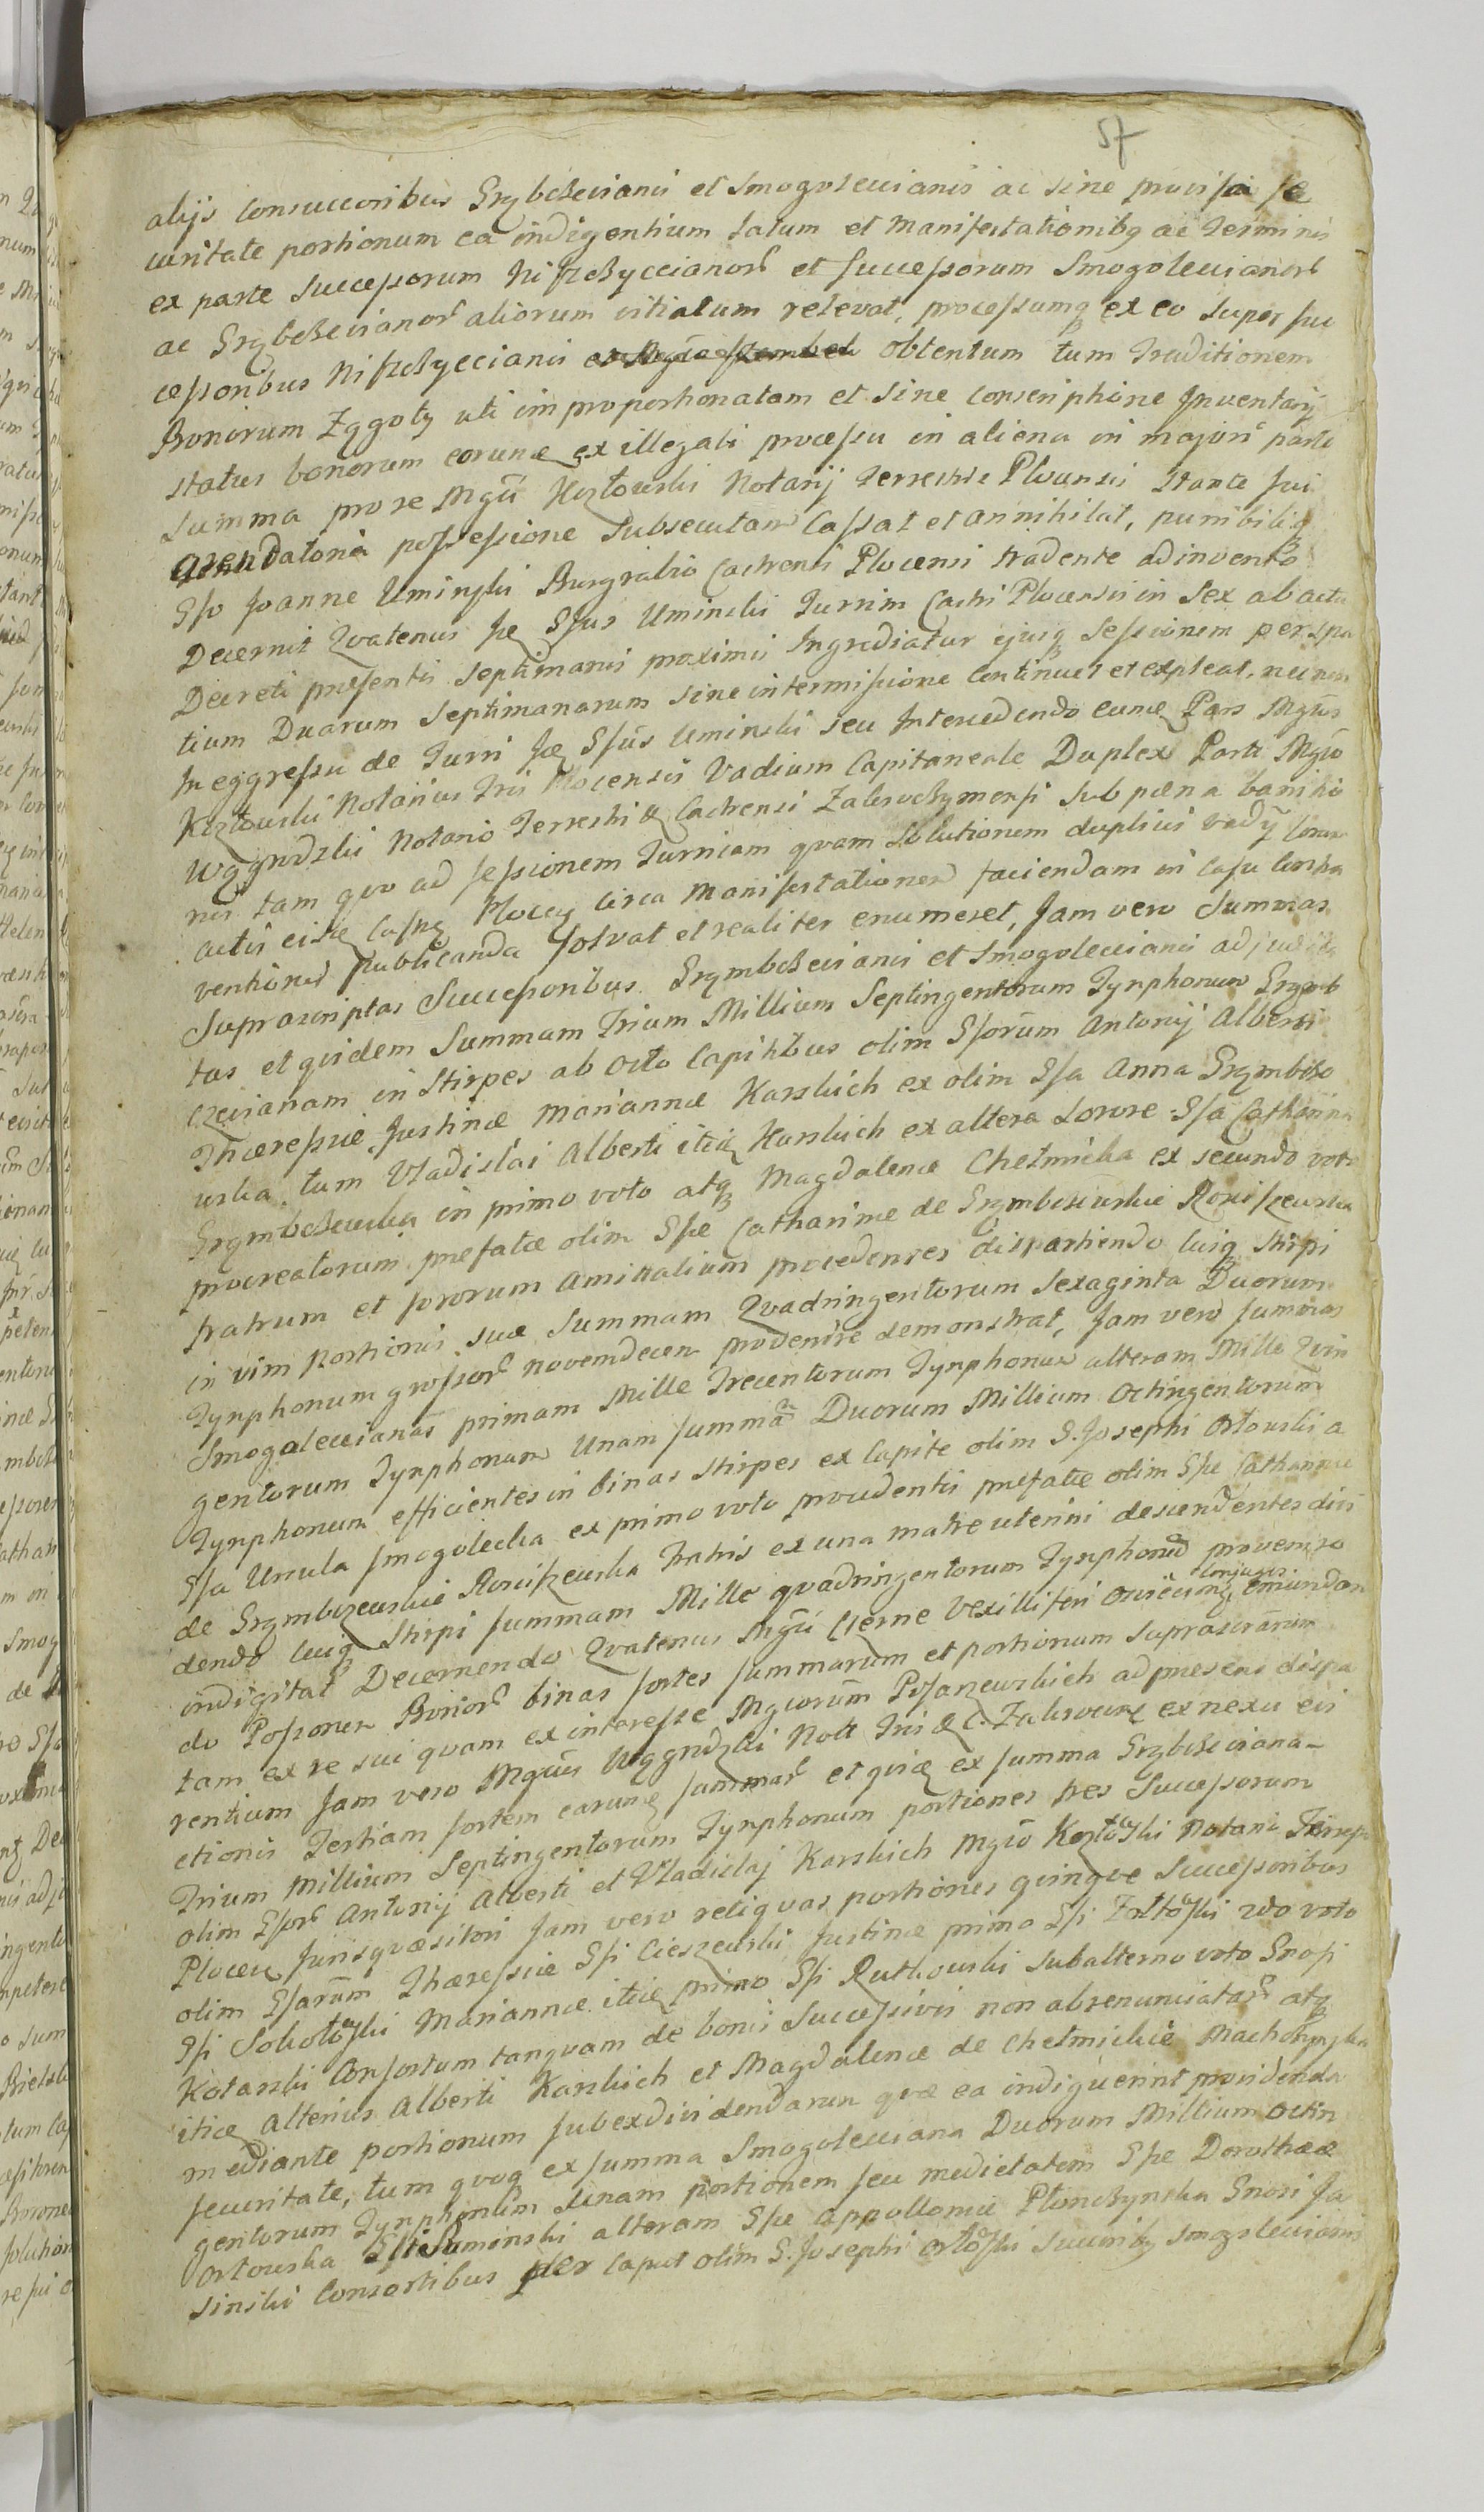 57
alijs Consuccoribus Grzybczevianis et Smogolevianis ac sine provisa se
curitate portionum ea indigentium latum et Manifestationibq ac Terminis
ex parte Successorum Niszczyccianor et Successorum Smogolevianor
ac Grzybczevianor aliorum vitiatum relevat, processumq ex eo super suc
cessoribus Niszczyccianis obtentum tum Traditionem
Bonorum Zggoty uti improportionatam et sine Conscriptione Inventarij
status bonorum eorund ex illegali processu in aliena in majori parte
Summa pro re Mgci Kozłowski Notarij Terrestris Plocensis stante sui
arendatoria possessione subsecutam Cassat et annihilat, punibiliq
Gso Joanne Uminski Burgrabio Castrensi Plocensi tradente adinvento
Decernit Qvatenus Se Gsus Uminski Turrim Castri Plocensis in Sex ab actu
Decreti presentis Septimanis proximis Ingrediatur ejusq Sessionem per spa
tium Duarum Septimanarum sine intermissione Continuet et expleat, nec non
In eggressu de Turri se Gsus Uminski seu Intercedendo eund Pars Mgcus
Kozłowski Notarius Tris Plocensis Vadium Capitaneale Duplex Parti Mgco
Wggrodzki Notario Terrestri & Castrensi Zakroczymensi sub pæna banitio
nis tam quo ad sessionem Turriam quam Solutionem duplicis vadij coram
actis eisd Castr Plocen circa Manifestationem faciendam in casu Contra
ventionis publicanda Solvat et realiter enumeret, Jam vero Summas
Suprascriptas Successoribus Grzymbczevianis et Smogolevianis adjudica
tas et quidem Summam Trium Millium Septingentorum Tynphonum Grzymb
czevianam in Stirpes ab octo Capitibus olim Gsorum Antonij Alberti
Thæressiæ Justinæ Mariannæ Karskich ex olim Gsa Anna Grzymbczo
wska tum Vladislai Alberti itid Karskich ex altera Sorore Gsa Catharina
Grzymbczewska in primo voto atq Magdalenæ Chełmicka ex secundo voto
procreatorum prefatæ olim Gsæ Catharinæ de Grzymbczewskie Rościszewska
fratrum et sororum Amitalium procedentes dispartiendo cuiq stirpi
in vim Portionis suæ Summam Qvadringentorum Sexaginta Duorum
Tynphonum grossor novemdecem provenire demonstrat, Jam vero Summas
Smogolevianas primam Mille Trecentorum Tynphonum alteram Mille Qvin
gentorum Tynphonum Unam Summam Duorum Millium Octingentorum
Tynphonum efficientes in binas stirpes ex Capite olim G. Josephi Orłowski a
Gsa Ursula Smogolecka ex primo voto procedentis prefatæ olim Gsæ Catharinæ
de Grzymbczewskie Rościszewska Fratris ex una matre uterini descendentes divi
dendo cuiq Stirpi Summam Mille qvadringentorum Tynphonum provenire
indigitat Decernendo Qvatenus Mgci Czerne Vexilliferi Oswiecimen Conjuges emundan
do Possoner Bonor binas sortes summarum et portionum suprascrarum
tam ex re sui quam ex interesse Mgcorum Posanzewskich ad presens dispa
rentium Jam vero Mgcus Wggrodzki Nott Tris & C. Zakroczen ex nexu evi
ctionis Tertiam sortem earund summar et quid ex summa Grzybczeviana
Trium Millium Septingentorum Tynphonum portiones tres Successorum
olim Gsor Antonij Alberti et Vladislaj Karskich Mgco Kozłowski Notario Terrestri
Plocen Jurisquæsitori Jam vero reliqvas portiones qvinqve Successoribus
olim Gsarum Thæressiæ Gsi Cieszewski Justinæ primo Gsi Zołtowski 2do voto
Gsi Sokołowski Mariannæ itid primo Gsi Rutkowski subalterno voto Gnosi
Kotarski Consortum tanquam de bonis Successivis non abrenunciatar atq
itid alterius Alberti Karskich et Magdalenæ de Chełmickie Machczynska
mediante portionum subexdividendarum qvæ ea indiguerint providenda
securitate, tum qvoq ex summa Smogoleviana Duorum Millium Octin
gentorum Tynphonum Unam portionem seu medietatem Gsæ Dorothææ
Orłowska Gsi Suminski alteram Gsæ Appolloniæ Płonczynska Gnosi Ja
sinski Consortibus per Caput olim G. Josephi Orłowski Succribq Smogolevianis